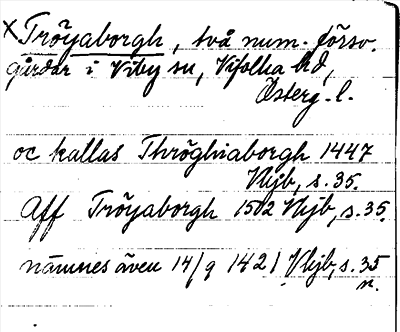 ×Tröÿaborgh, två num. försv.
gårdar i Viby sn, Vifolka hd,
Österg. l.
oc kallas Thröghiaborgh 1447
Vhjb, s. 35.
Aff Tröÿaborgh 1502 Vhjb, s. 35.
nämnes även 14/9 1421 Vhjb, s. 35
n.